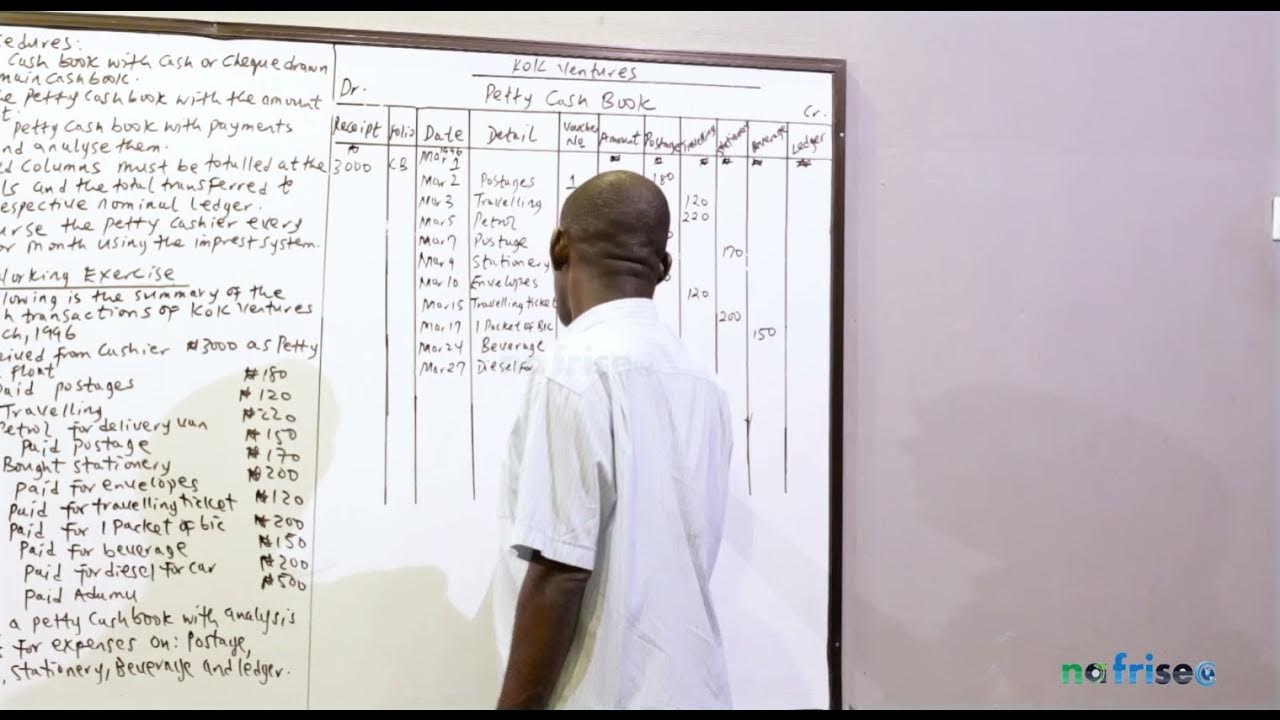 edures:
Cash book with Cash or Cheque drawn
main cash book.
he petty cash book with the amount
t.
petty cash book with payments
nd analyse them.
ed Columns must be totalled at the
ls and the total transferred to
espective nominal ledger.
urse the petty cashier every
or month using the imprest system.
Working Exercise
llowing is the summary of the
h transactions of KOK Ventures
ch, 1996
eived from Cashier ₦3000 as Petty
float
Paid postages ₦180
Travelling ₦120
Petrol for delivery van ₦220
Paid Postage ₦150
Bought stationery ₦170
Paid for envelopes ₦200
Paid for travelling ticket ₦120
Paid for 1 Packet of bic ₦200
Paid for beverage ₦150
Paid for diesel for car ₦200
Paid Adamu ₦500
a petty Cashbook with analysis
for expenses on: Postage,
, Stationery, Beverage and ledger.
KOK Ventures
Dr. Petty Cash Book Cr.
Receipt Folio Date Detail Voucher No Amount Postage Travelling Stationery Beverage Ledger
₦ 1996 ₦ ₦ ₦ ₦ ₦
3000 CB Mar 1
Mar 2 Postages 1 180
Mar 3 Travelling 120
Mar 5 Petrol 220
Mar 7 Postage
Mar 9 Stationery 170
Mar 10 Envelopes
Mar 15 Travelling ticket 120
Mar 17 1 Packet of Bic 200
Mar 24 Beverage 150
Mar 27 Diesel for
nafrise
nafrise